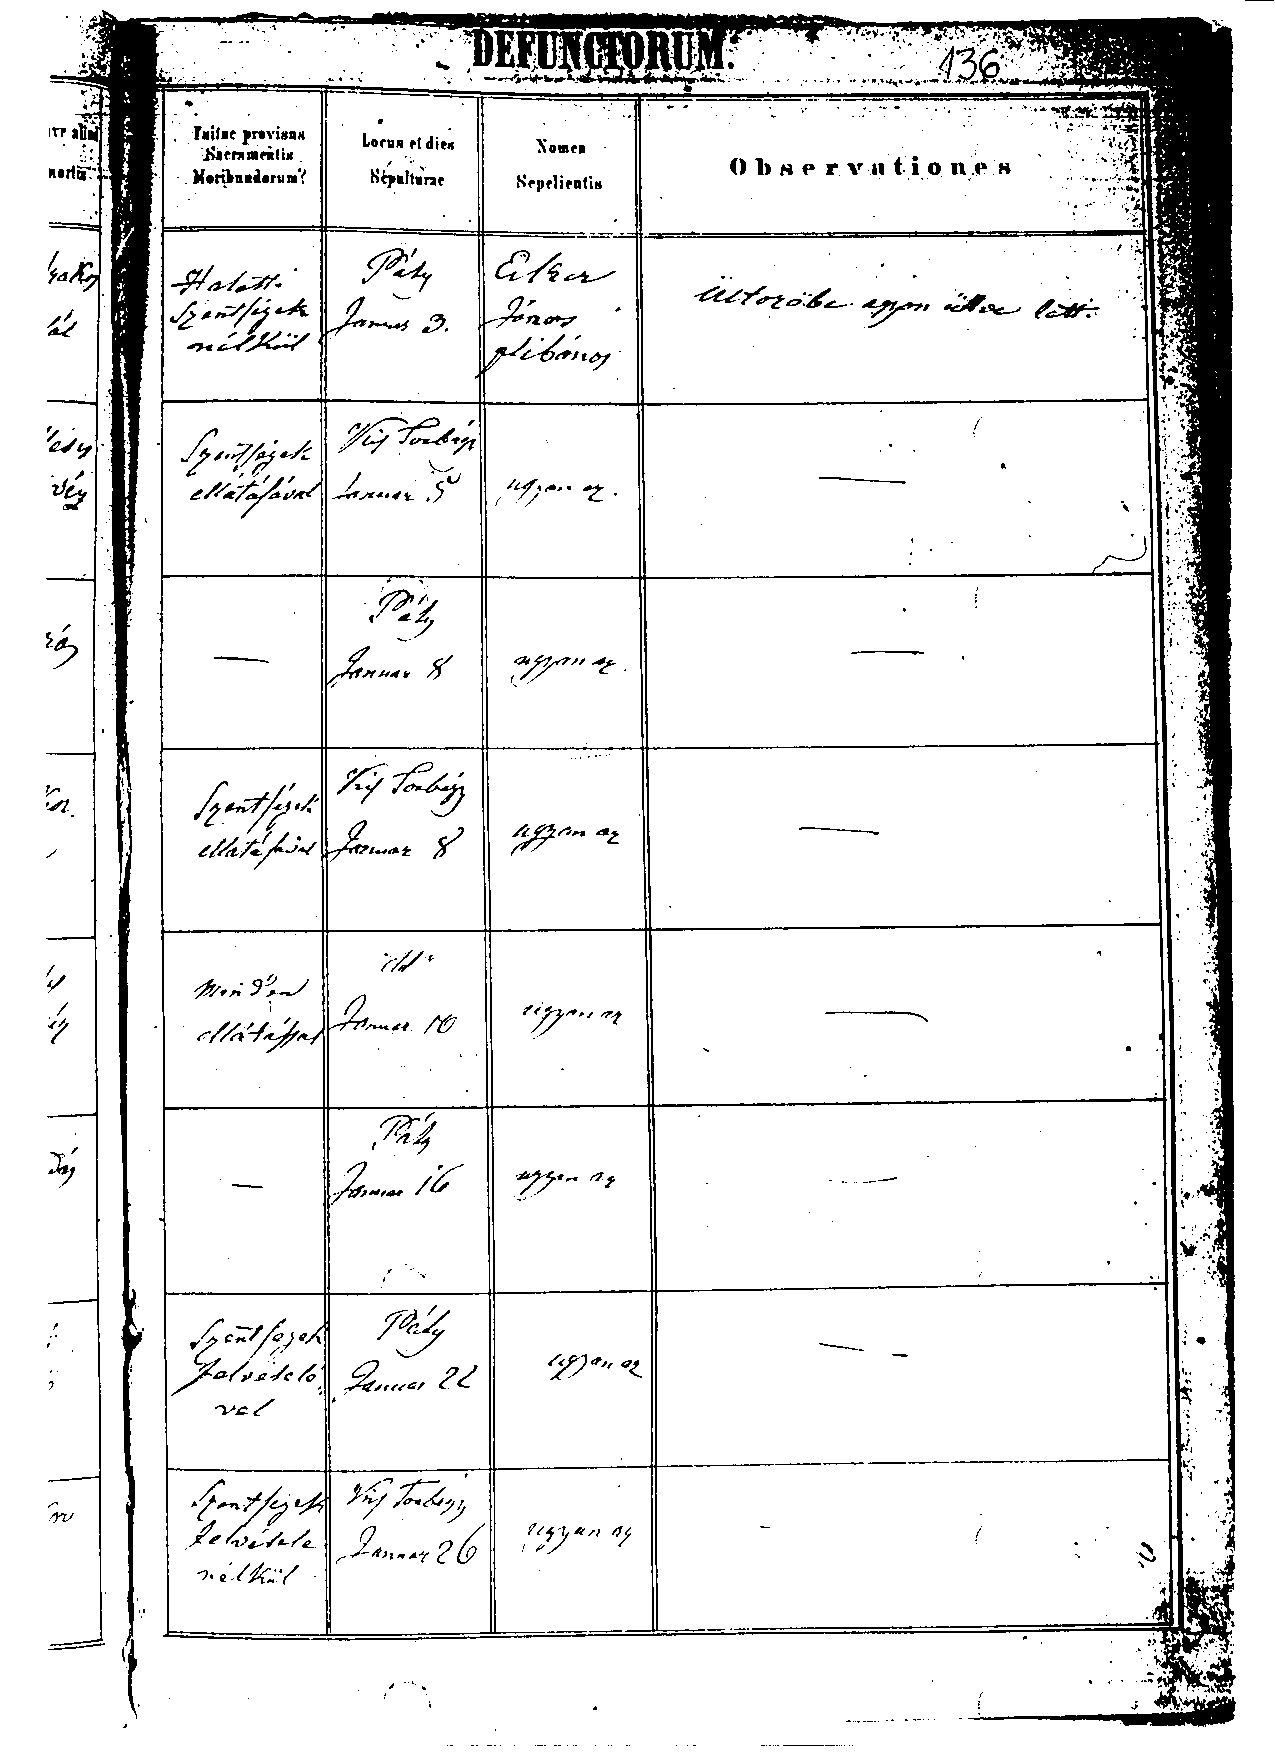 DEFUNCTORUM.
136
Fuitne provisus
Sacramentis
Moribundorum?
Locus et dies
Sepulturae
Nomen
Sepelientis
Observationes
Halotti
Szentségek
nélkül
Páty
Januar 3.
János
plébános
lett.
Szentségek
ellátásával
Kis Torbágy
Januar 5
ugyan az.
—
—
Páty
Januar 8
ugyan az.
—
Szentségek
ellátásával
Kis Torbágy
Januar 8
ugyan az
—
Minden
ellátással
Januar 10
ugyan az
—
—
Páty
Januar 16
ugyan az
—
Szentségek
felvételé
vel
Páty
Januar 22
ugyan az
—
Szentségek
felvétele
nélkül
Kis Torbágy
Januar 26
ugyan az
-